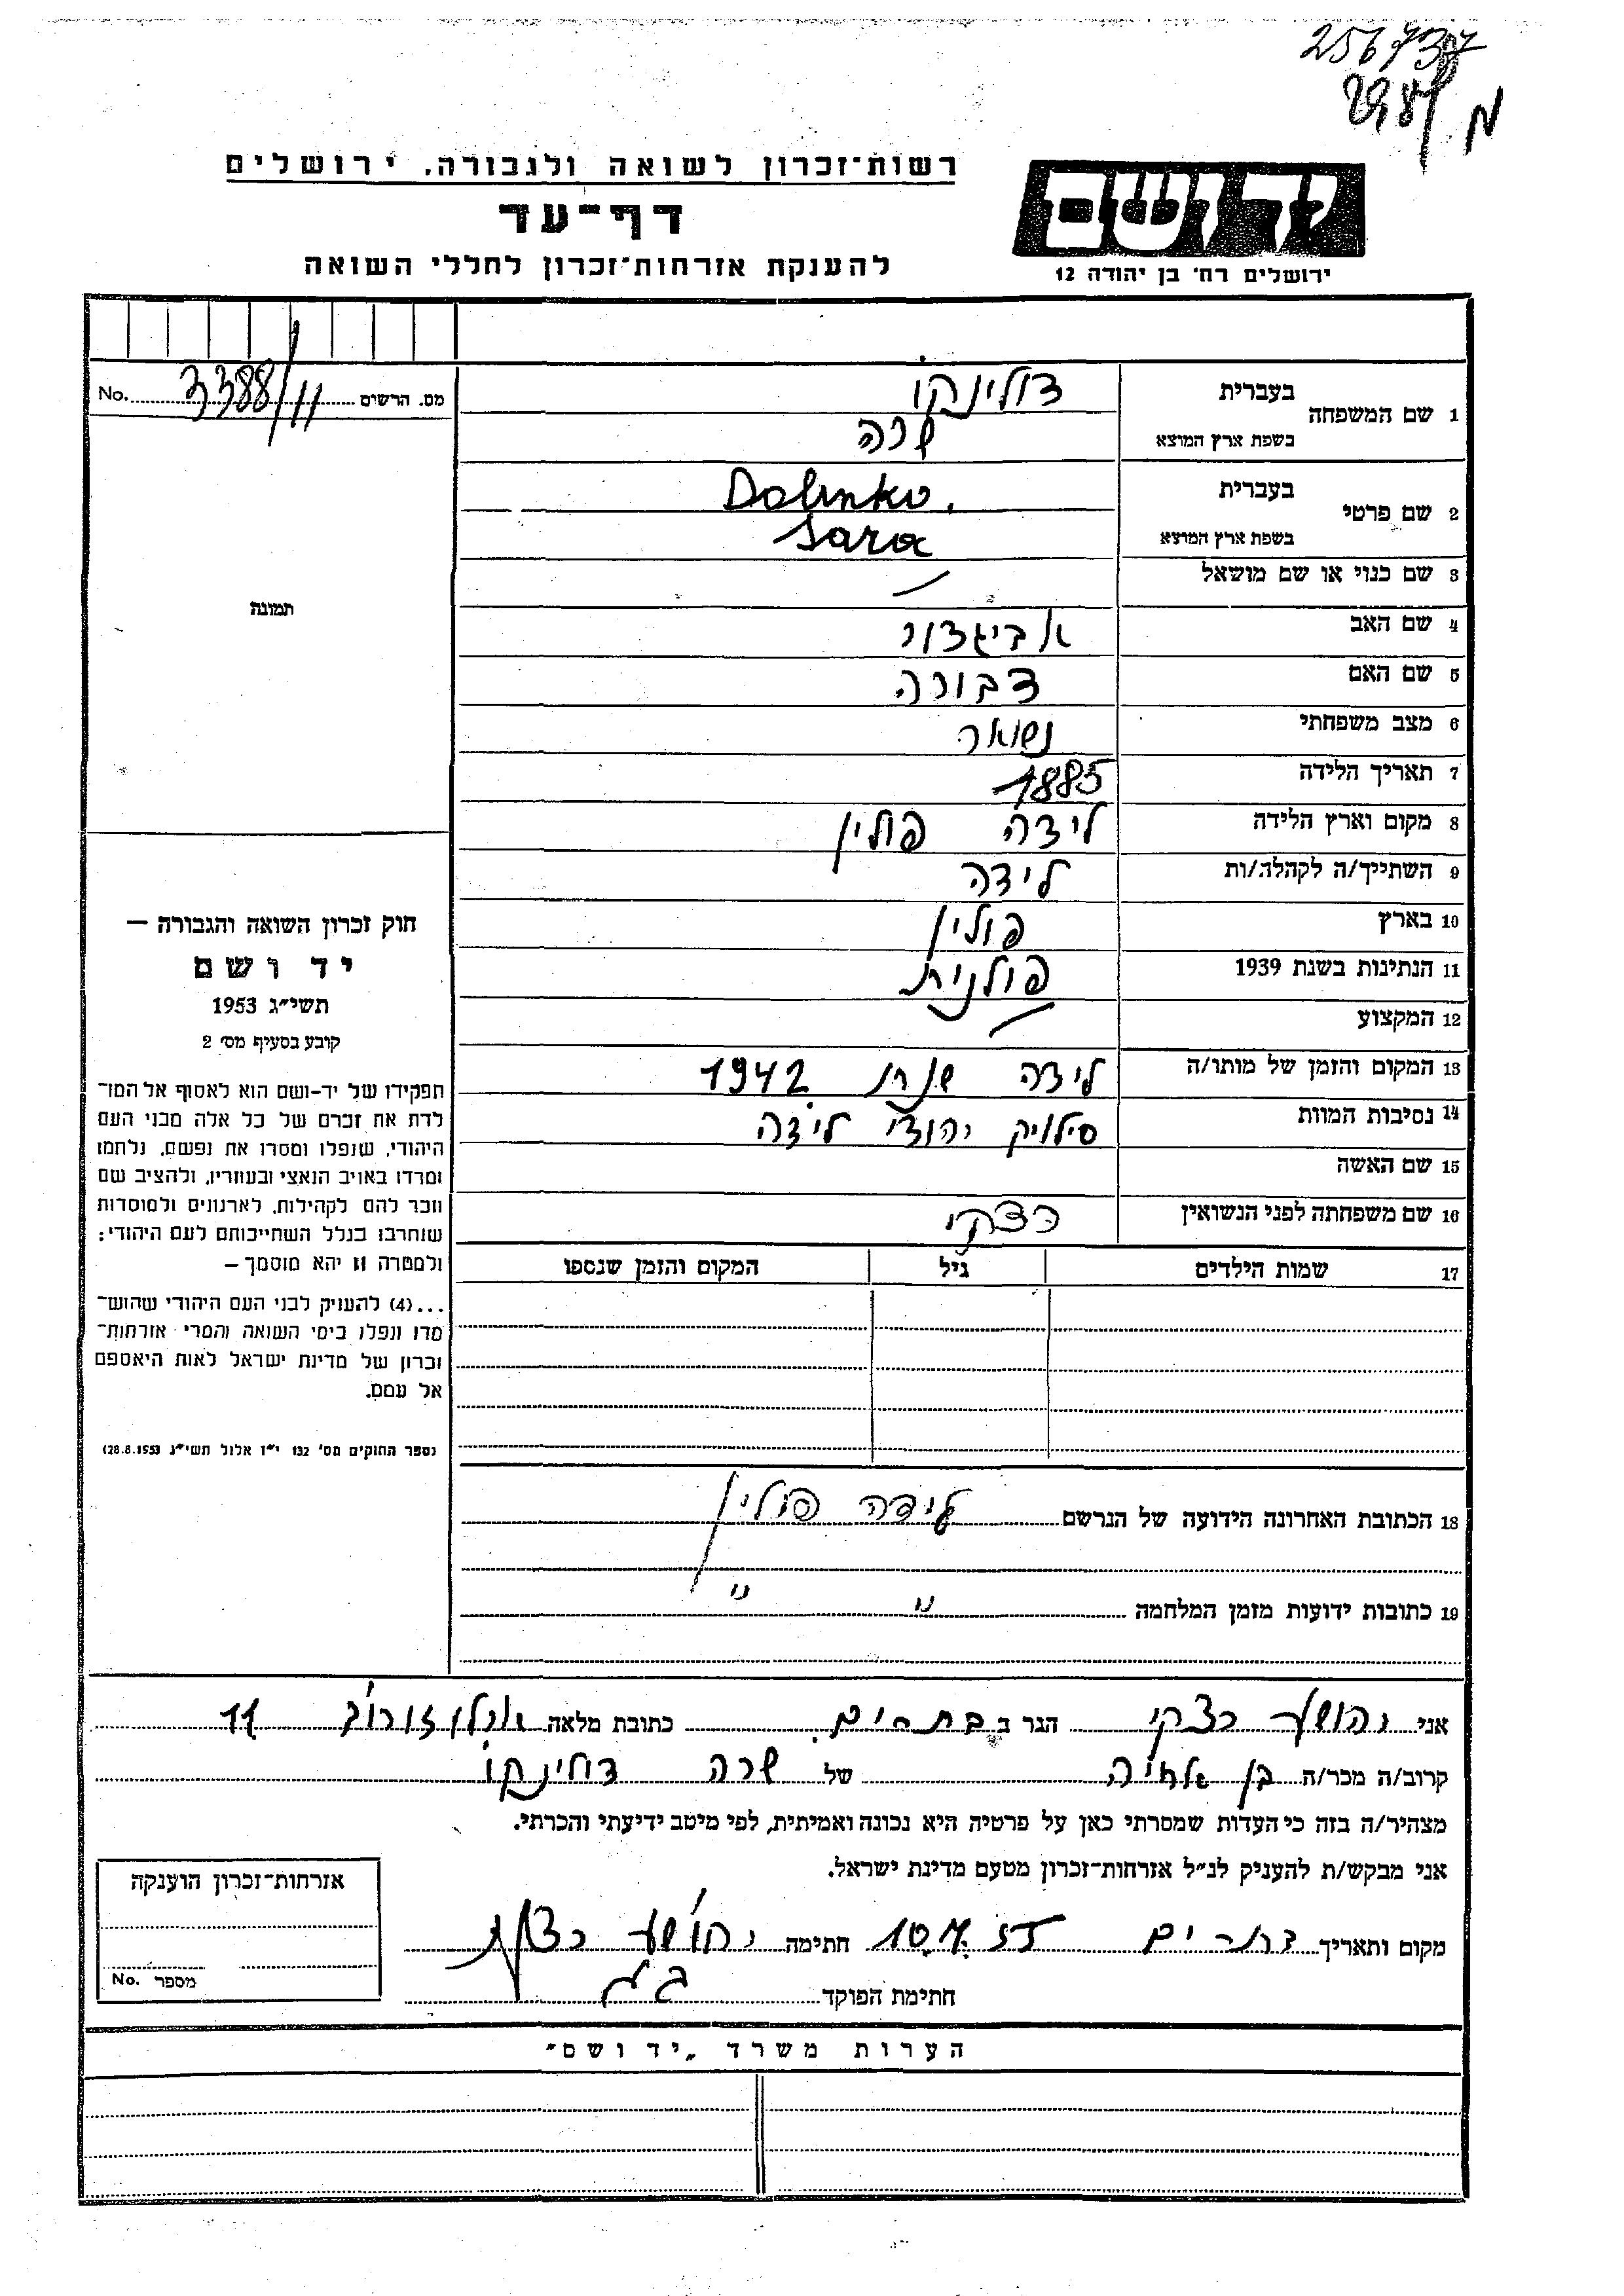 256737
298/ מ
רשות־זכרון לשואה ולגבורה. ירושלים
דף־עד
להענקת אזרחות־זכרון לחללי השואה
יד ושם
ירושלים רח׳ בן יהודה 12
מס. הרשים 3388/11 No.
1 שם המשפחה בעברית דולינקו
בשפת ארץ המוצא שרה
2 שם פרטי בעברית Dolinko.
בשפת ארץ המוצא Sara
3 שם כנוי או שם מושאל —
4 שם האב אביגדור
5 שם האם דבורה
6 מצב משפחתי נשואה
7 תאריך הלידה 1885
8 מקום וארץ הלידה לידה פולין
9 השתייך/ה לקהלה/ות לידה
10 בארץ פולין
11 הנתינות בשנת 1939 פולנית
12 המקצוע —
13 המקום והזמן של מותו/ה לידה שנת 1942
14 נסיבות המוות סילוק יהודי לידה
15 שם האשה
16 שם משפחתה לפני הנשואין רצקי
17 שמות הילדים גיל המקום והזמן שנספו
18 הכתובת האחרונה הידועה של הנרשם לידה פולין
19 כתובות ידועות מזמן המלחמה " "
תמונה
חוק זכרון השואה והגבורה —
יד ושם
תשי״ג 1953
קובע בסעיף מס׳ 2
תפקידו של יד-ושם הוא לאסוף אל המו־
לדת את זכרם של כל אלה מבני העם
היהודי, שנפלו ומסרו את נפשם, נלחמו
ומרדו באויב הנאצי ובעוזריו, ולהציב שם
וזכר להם לקהילות, לארגונים ולמוסדות
שנחרבו בגלל השתייכותם לעם היהודי;
ולמטרה זו יהא מוסמך —
...(4) להעניק לבני העם היהודי שהוש־
מדו ונפלו בימי השואה והמרי אזרחות־
זכרון של מדינת ישראל לאות היאספם
אל עמם.
(ספר החוקים מס׳ 132 י״ז אלול תשי״ג 28.8.1953)
אני יהושע רצקי הגר ב בת ים. כתובת מלאה ארלוזורוב 11
קרוב/ה מכר/ה בן אחיה של שרה דולינקו
מצהיר/ה בזה כי העדות שמסרתי כאן על פרטיה היא נכונה ואמיתית, לפי מיטב ידיעתי והכרתי.
אני מבקש/ת להעניק לנ״ל אזרחות־זכרון מטעם מדינת ישראל.
מקום ותאריך בת ים 10.7.55 חתימה יהושע רצקי
חתימת הפוקד
אזרחות־זכרון הוענקה
מספר No.
הערות משרד „יד ושם״